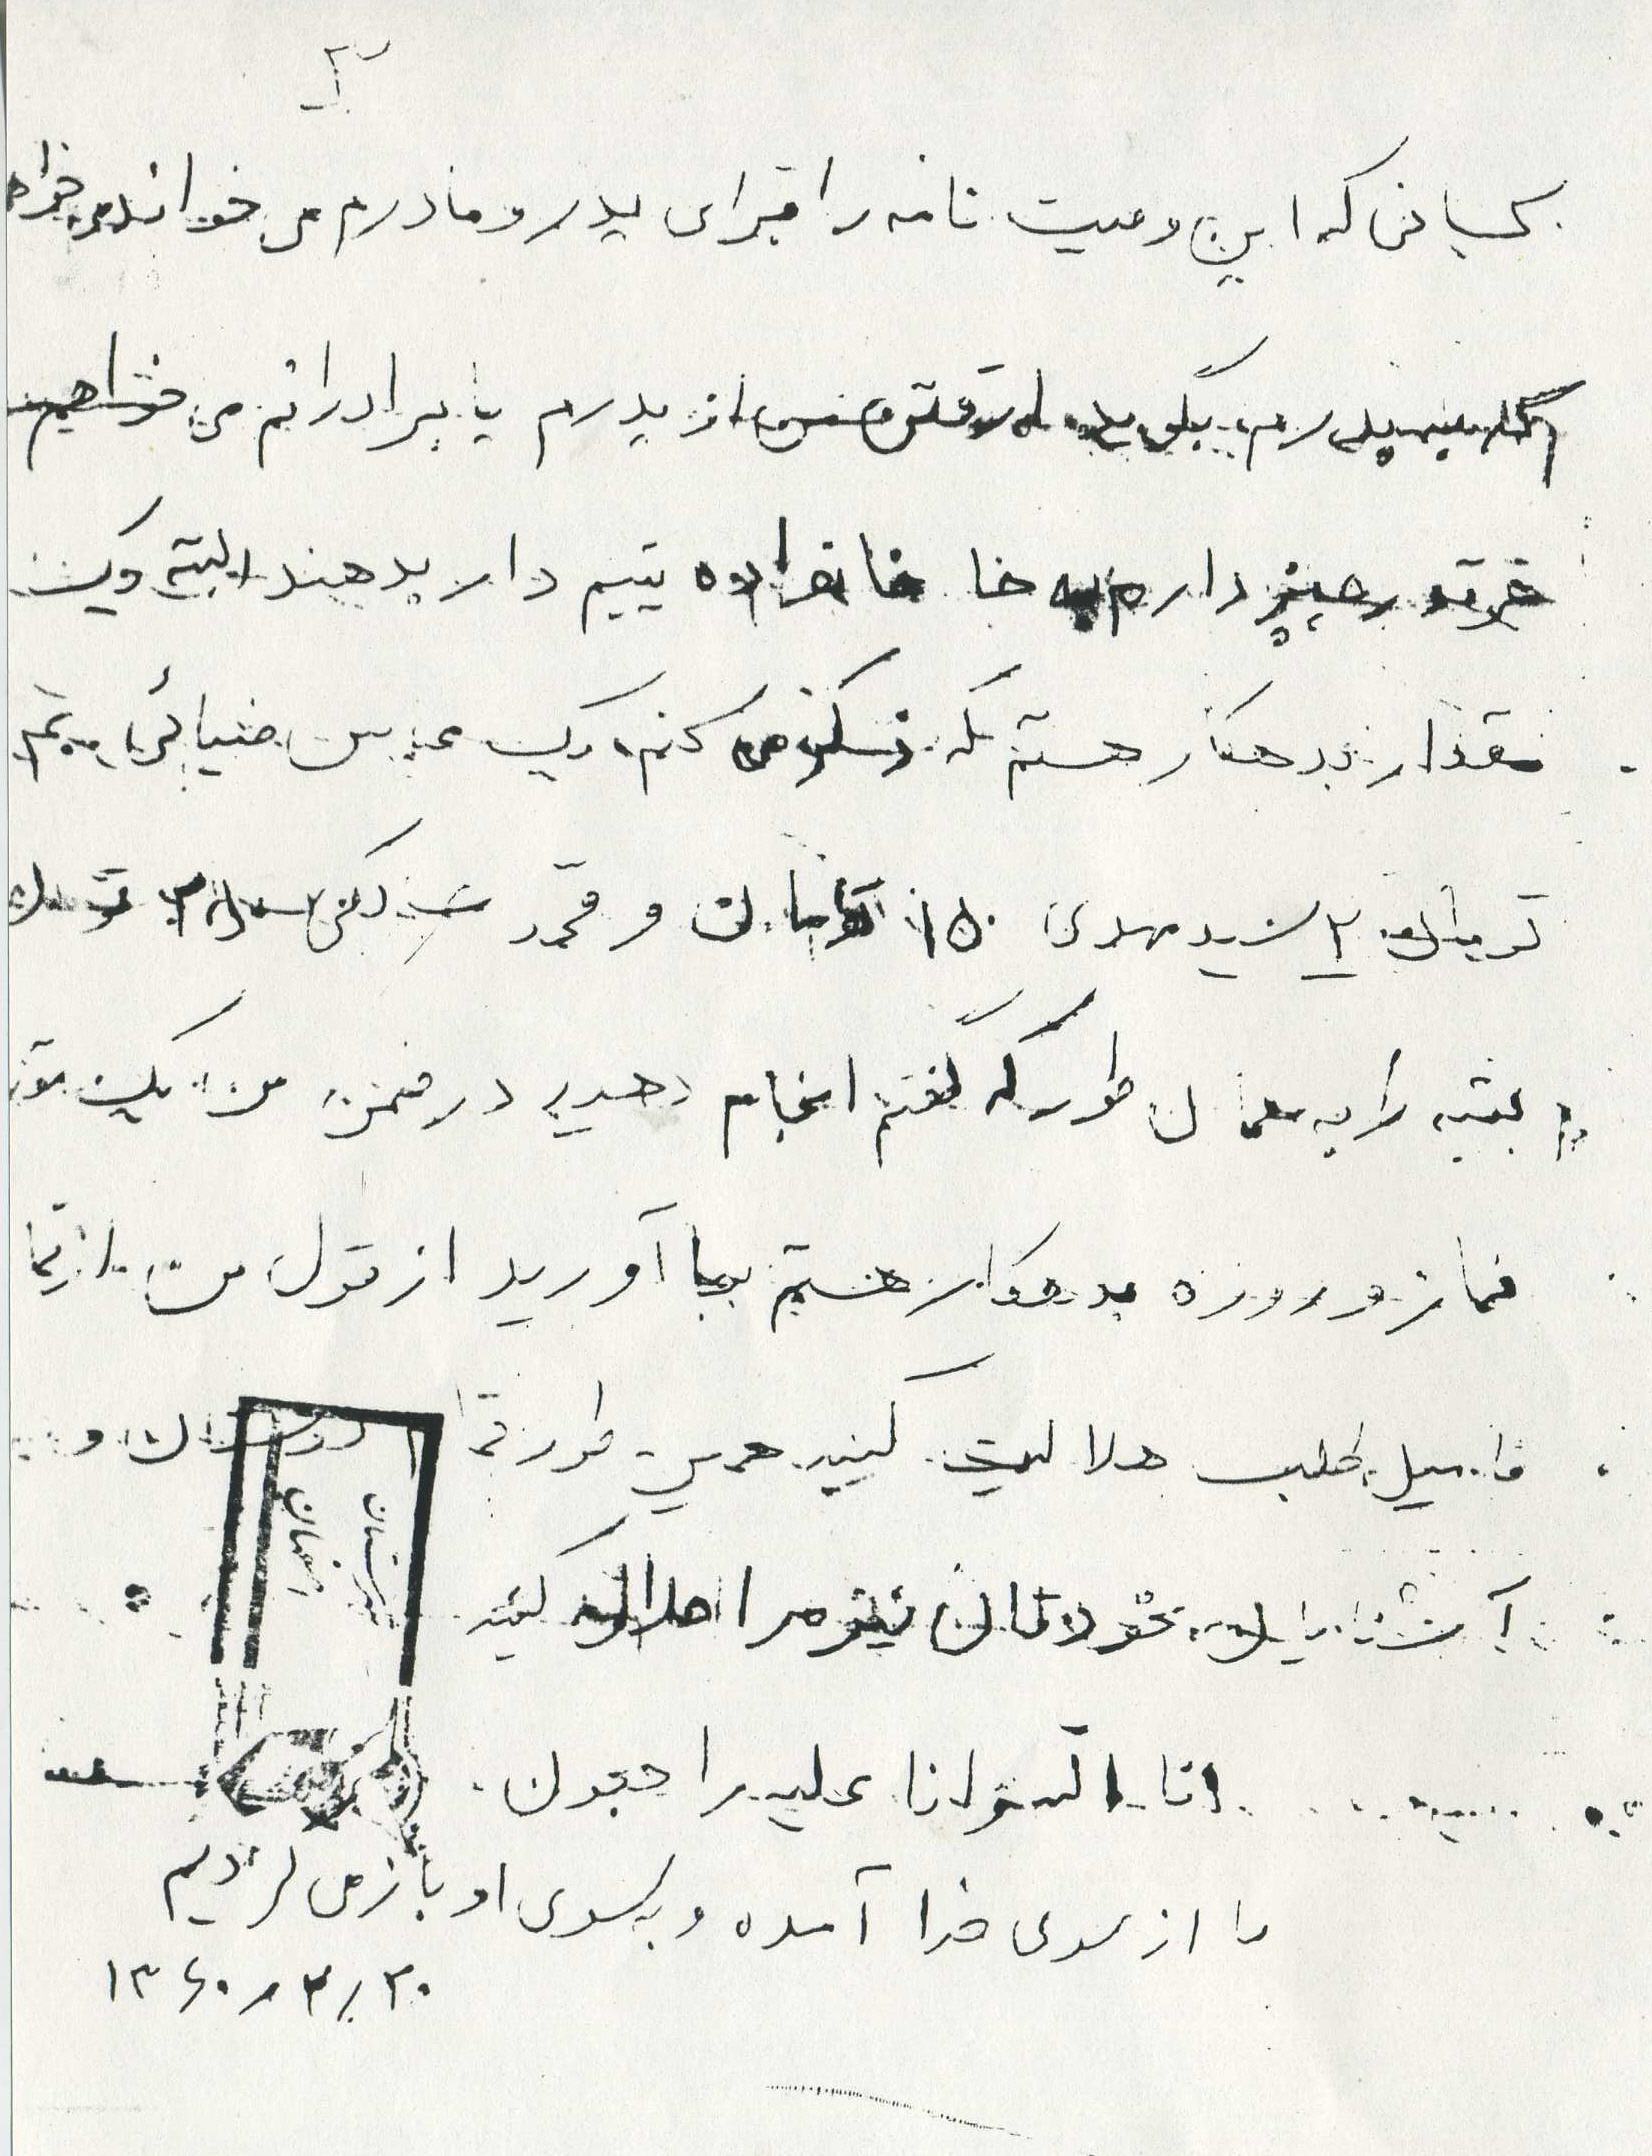 ۳
کسانی که این وصیت نامه را برای پدر و مادرم می خوانند می خواهم
که به پدرم بگویید از پدرم یا برادرانم می خواهیم
هرقدر چیز دارم به خا خانواده یتیم دار بدهند البته یک
مقدار بدهکار هستم که ذکر می کنم یک عباس ضیائی
تومان ۲ سید مهدی ۱۵۰ تومان و محمد
بقیه را به همان طور که گفتم انجام دهید در ضمن من یک
نماز و روزه بدهکار هستم بجا آورید از قول من از تما
فامیل طلب حلالیت کنید همین طور تمام دوستان و
آشنایان خودتان نیز مرا حلال کنید
انا الله و انا علیه راجعون
ما از سوی خدا آمده و به سوی او باز می گردیم
۱۳۶۰٫۳٫۲۰